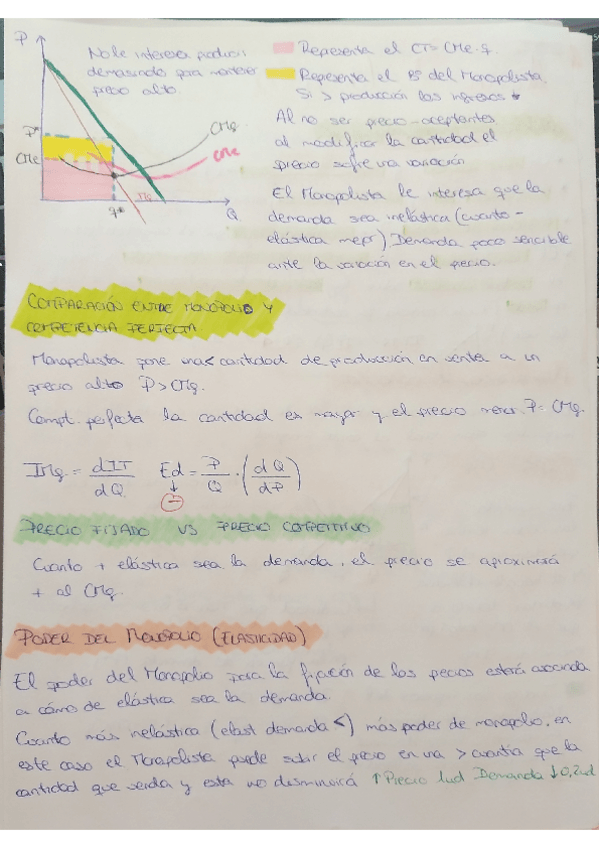 P
No le interesa producir
demasiado para mantener
precio alto.
P*
CMe
CMg
CMe
IMg
q*
Q
Representa el CT = CMe·q.
Representa el Bº del Monopolista.
Si > producción los ingresos
Al no ser precio-aceptantes
al modificar la cantidad el
precio sufre una variación
El Monopolista le interesa que la
demanda sea inelástica (cuanto -
elástica mejor) Demanda poco sencible
ante la variación en el precio.
COMPARACIÓN ENTRE MONOPOLIO Y
COMPETENCIA PERFECTA
Monopolista pone una < cantidad de producción en venta a un
precio alto P > CMg.
Compt. perfecta la cantidad es mayor y el precio menor P = CMg.
IMg = dIT / dQ Ed = P / Q · (dQ / dP)
-
PRECIO FIJADO VS PRECIO COMPETITIVO
Cuanto + elástica sea la demanda, el precio se aproximará
+ al CMg.
PODER DEL MONOPOLIO (ELASTICIDAD)
El poder del Monopolio para la fijación de los precios estará asociada
a cómo de elástica sea la demanda.
Cuanto más inelástica (elast demanda <) más poder de monopolio, en
este caso el Monopolista puede subir el precio en una > cuantía que la
cantidad que venda y esta no disminuirá ↑ Precio 1ud Demanda ↓ 0,2ud